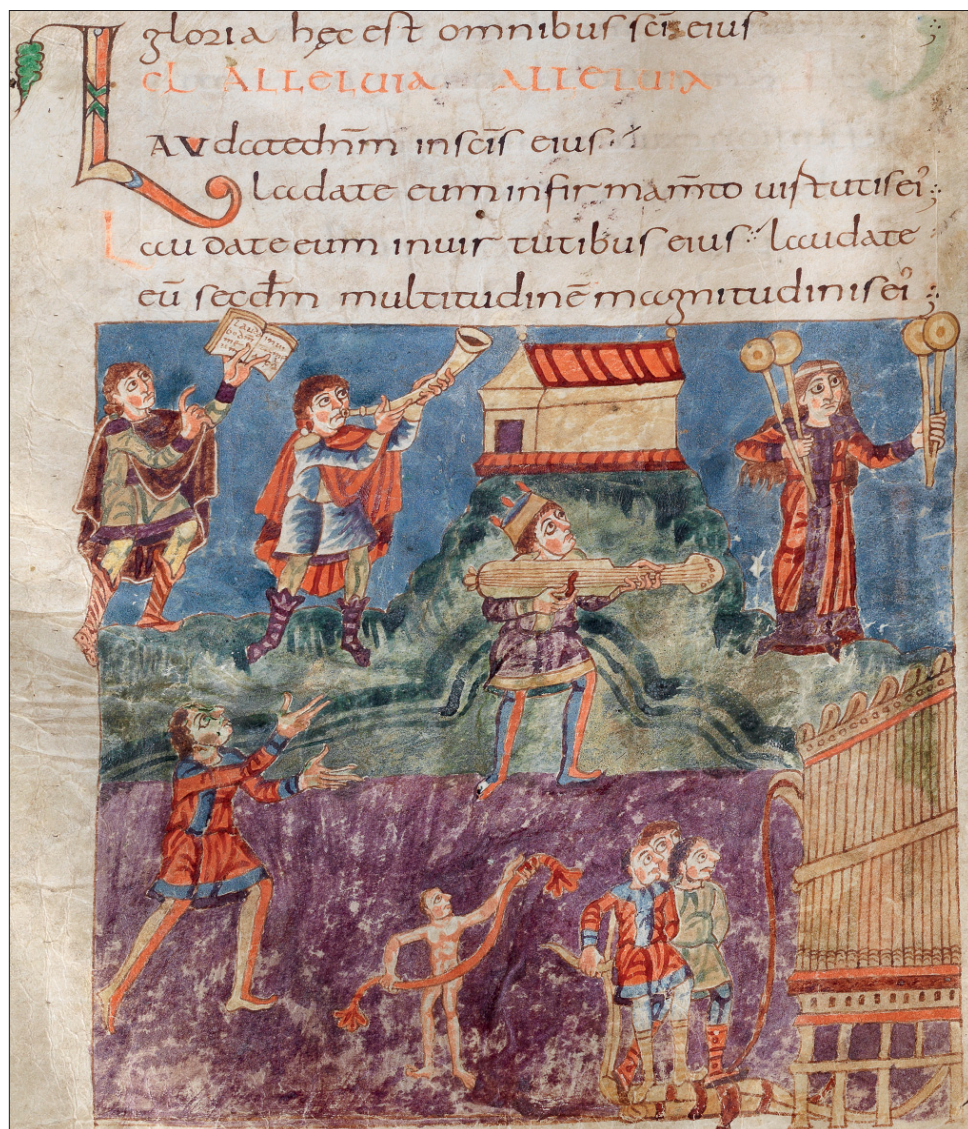 gloria hęc est omnibus scīs eius
cl ALLELUIA ALLELUIA
LAVdate dn̄m in scīs eius
laudate eum in firmam̄to uirtutis ei᾿
Laudate eum in uirtutibus eius laudate
eū secdm̄ multitudinē magnitudinis ei᾿